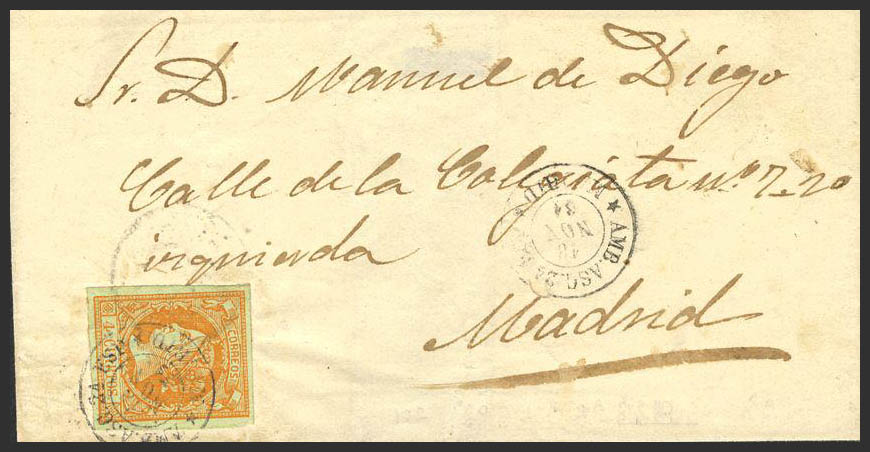 Sr. D. Manuel de Diego
Calle de la Colegiata nº 7_2º
izquierda
Madrid
AMB. ASC. 2ª
NOV
CORREOS